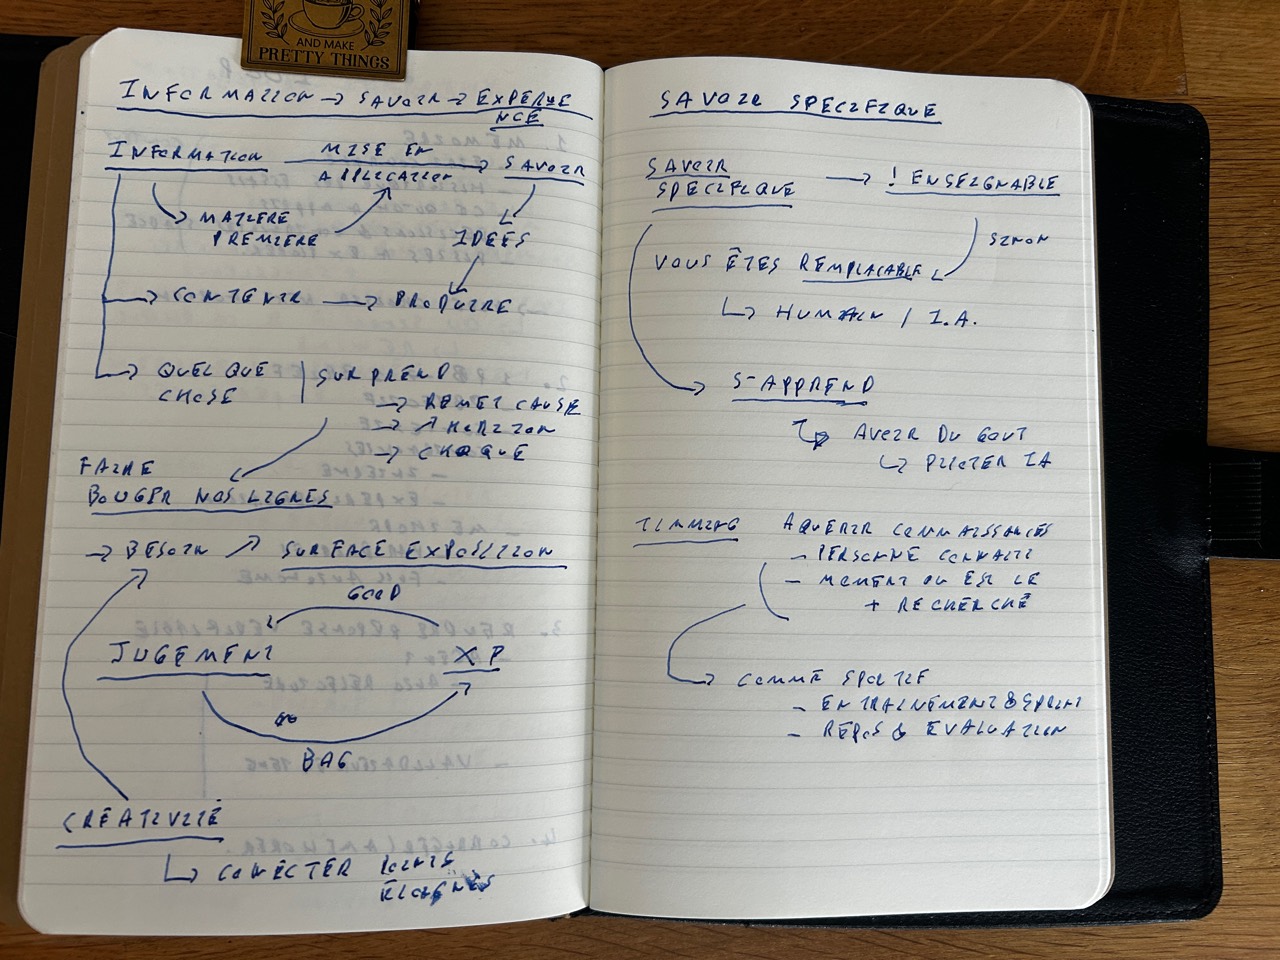 AND MAKE
PRETTY THINGS
INFORMATION → SAVOIR → EXPERIE
NCE
INFORMATION MISE EN APPLICATION → SAVOIR
MATIERE
PREMIERE
IDEES
CONTENIR → PRODUIRE
→ QUELQUE | SURPREND
CHOSE
→ REMET CAUSE
→ ↗ HORIZON
→ CHOQUE
FAIRE
BOUGER NOS LIGNES
→ BESOIN ↗ SURFACE EXPOSITION
GOOD
JUGEMENT XP
BAG
CREATIVITÉ
↳ CONECTER POINTS
ELOIGNÉS
SAVOIR SPECIFIQUE
SAVOIR
SPECIFIQUE → ! ENSEIGNABLE
SINON
VOUS ÊTES REMPLACABLE
↳ HUMAIN / I.A.
S-APPREND
↳ AVOIR DU GOUT
↳ PILOTER IA
TIMMING AQUERIR CONNAISSANCES
- PERSONNE CONNAIT
- MOMENT OU EST LE
+ RECHERCHÉ
→ COMME SPORTIF
- ENTRAINEMENT & SPRINT
- REPOS & EVALUATION